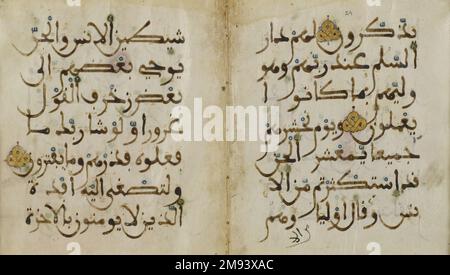 يذكرون لهم دار
السلم عند ربهم وهو
وليهم بما كانوا
يعملون ويوم نحشرهم
جميعا يمعشر الجن
قد استكثرتم من الا
نس وقال اولياوهم
شيطين الانس والجن
يوحي بعضهم الى
بعض زخرف القول
غرورا ولو شا ربك ما
فعلوه فذرهم وما يفترون
ولتصغى اليه افدة
الذين لا يومنون بالاخرة
alamy
Image ID: 2M93XAC
www.alamy.com